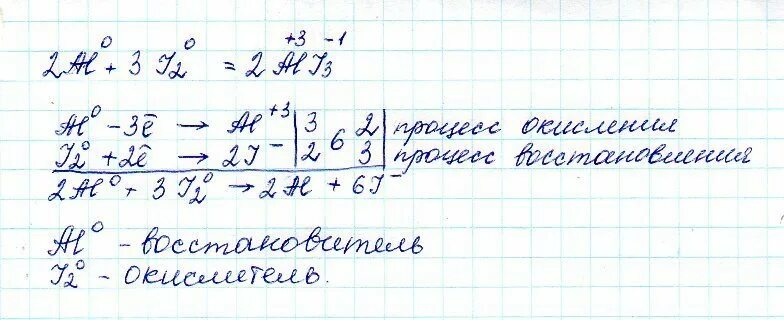 2Al⁰ + 3 J₂⁰ = 2 Al⁺³J₃⁻¹
Al⁰ - 3ē → Al⁺³ | 3 | 2 | процесс окисления
J₂⁰ + 2ē → 2J⁻ | 2 6 3 | процесс восстановления
2Al⁰ + 3 J₂⁰ → 2Al + 6J⁻
Al⁰ - восстановитель
J₂⁰ - окислитель.